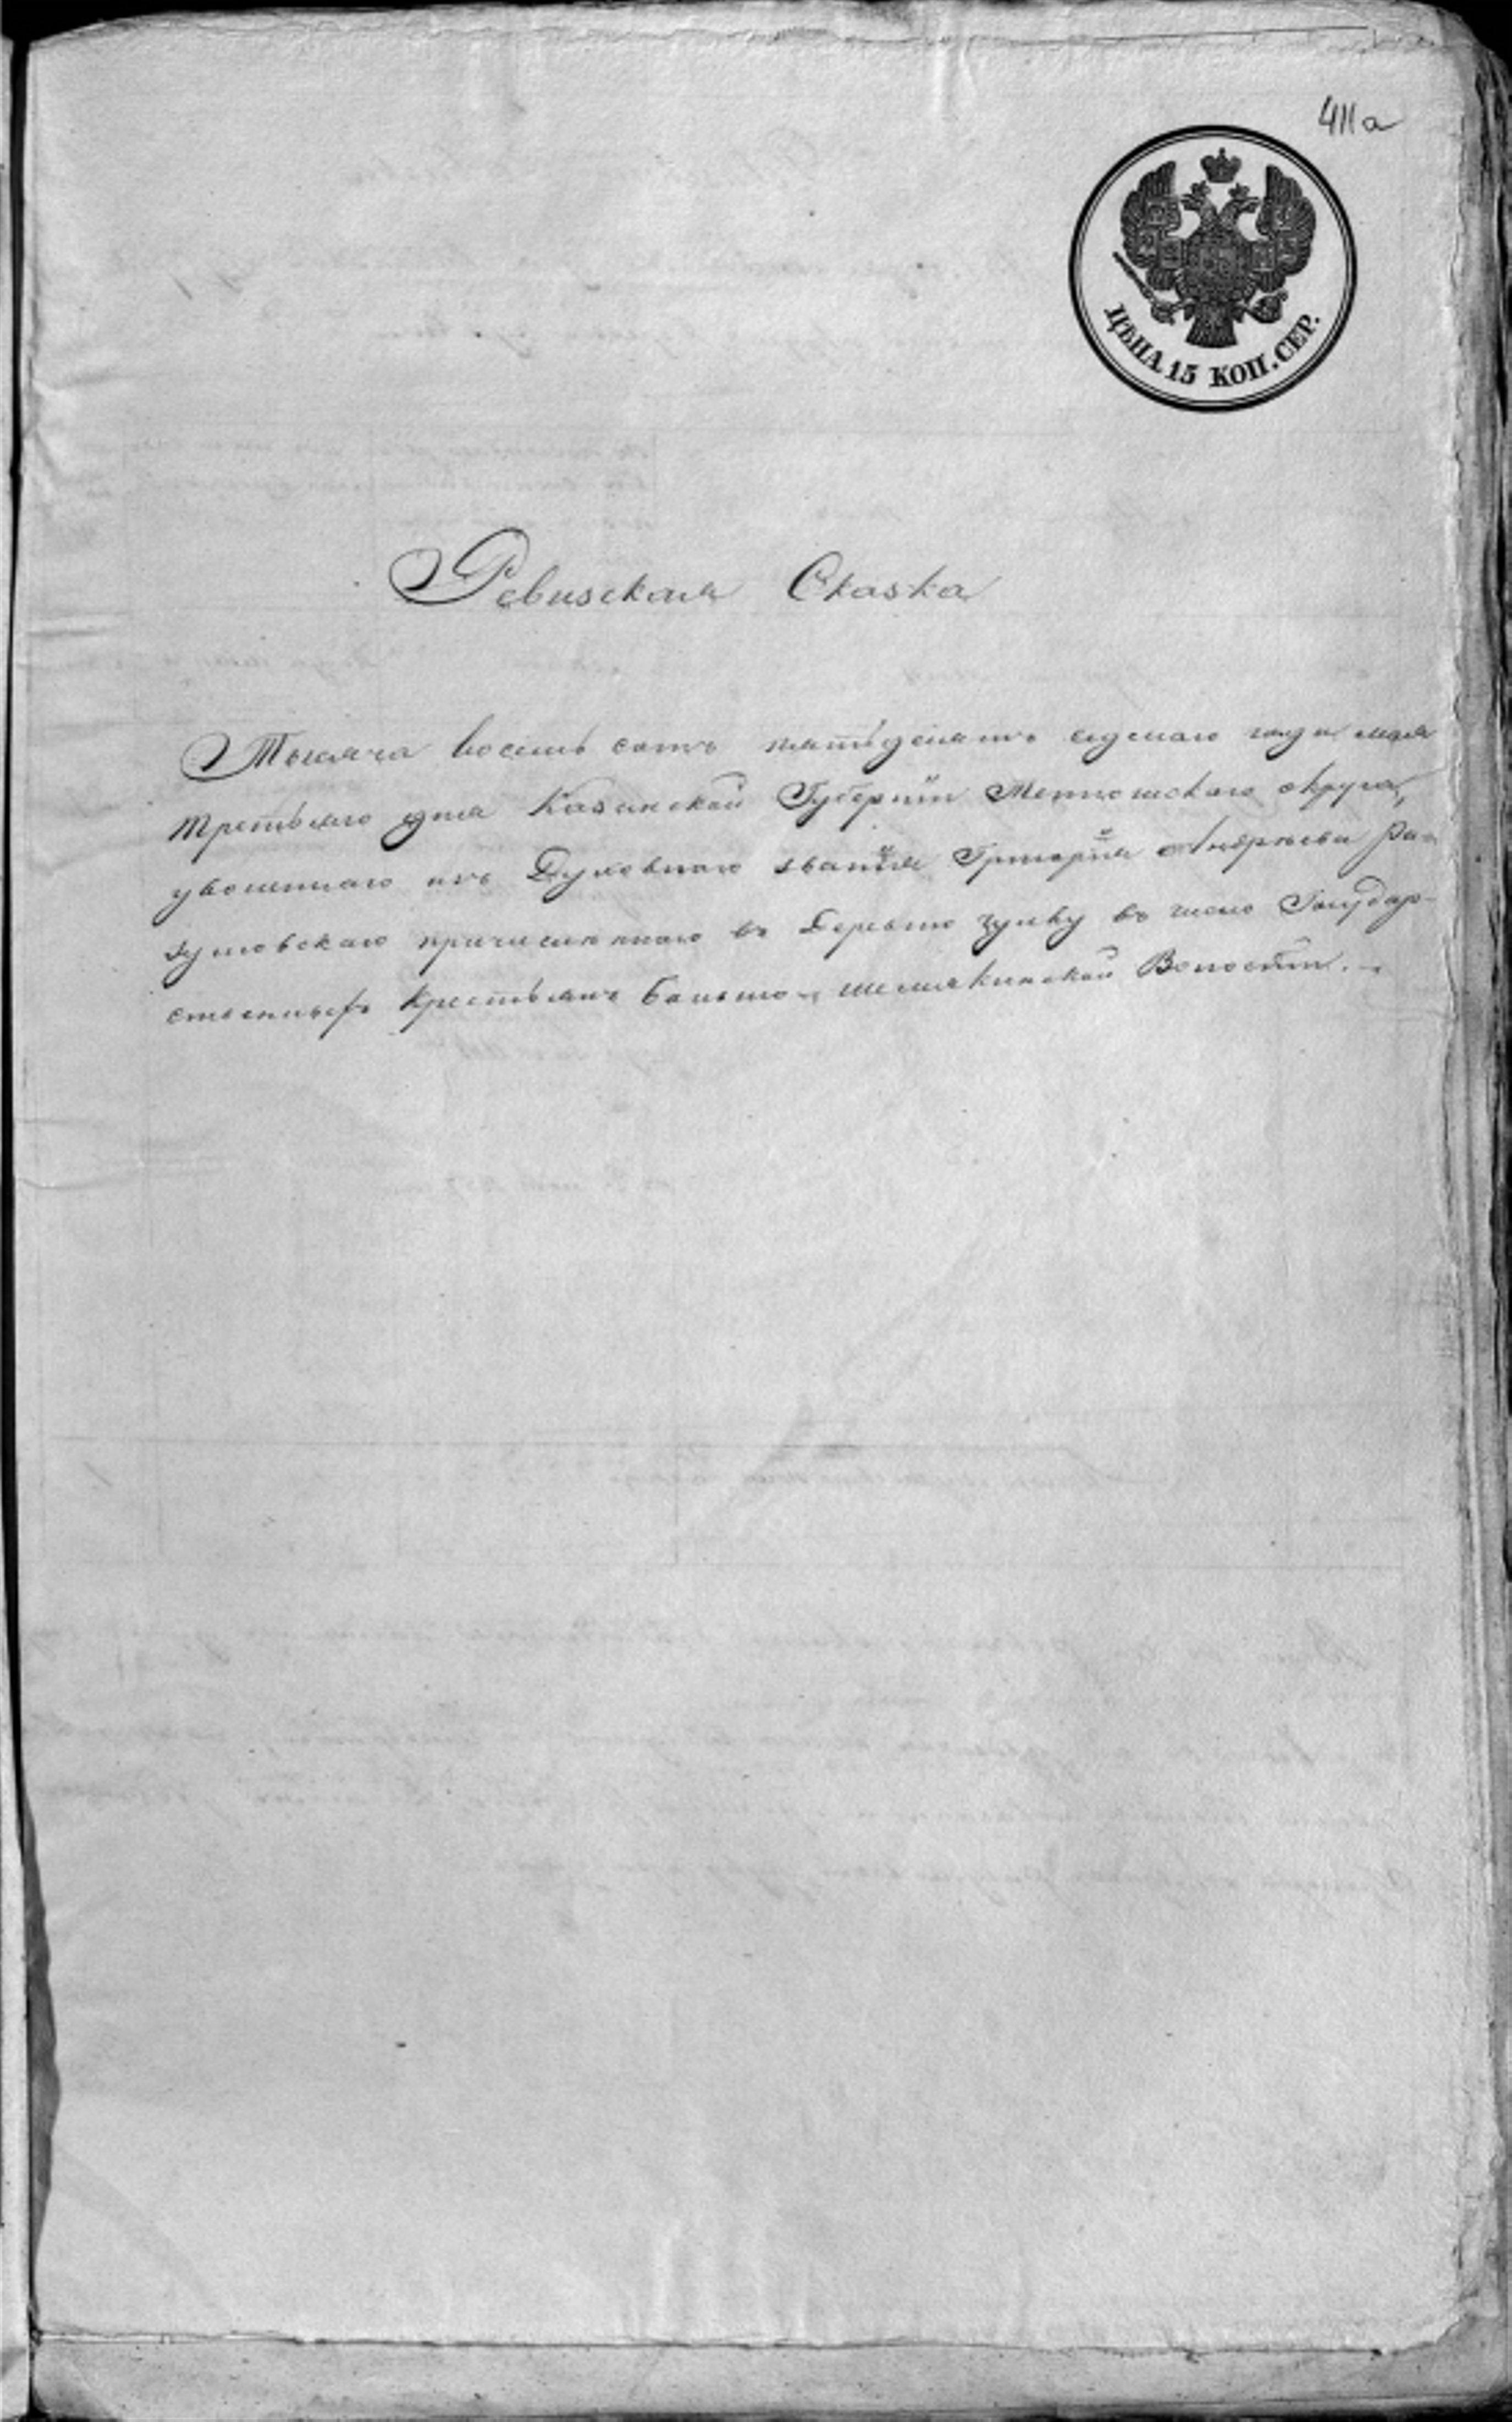 411а
ЦѢНА 15 КОП. СЕР.
Ревизская Сказка
Тысяча восемь сотъ пятьдесятъ седмаго года мая
третьяго дня Казанской Губернiи округа,
уволеннаго изъ Духовнаго званiя Григорiя Андреева Ра-
зумовскаго причисленнаго въ Деревню в число Государ-
ственныхъ Крестьянъ Больше Волости.